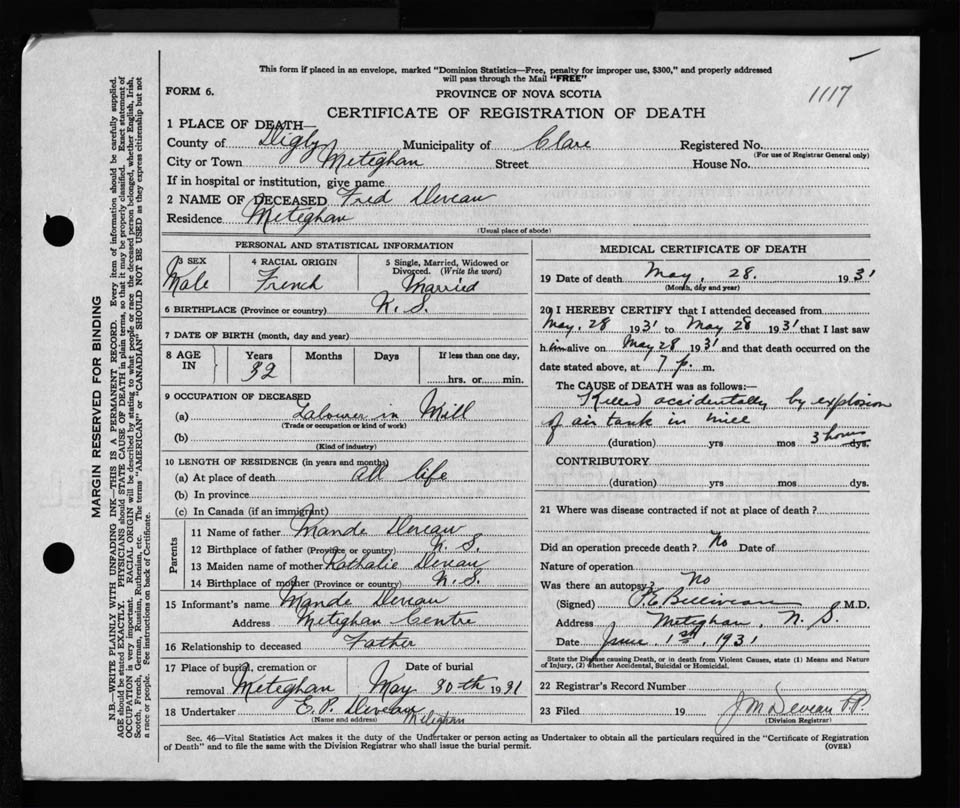 This form if placed in an envelope, marked "Dominion Statistics—Free, penalty for improper use, $300," and properly addressed
will pass through the Mail "FREE"
FORM 6.
PROVINCE OF NOVA SCOTIA
1117
CERTIFICATE OF REGISTRATION OF DEATH
1 PLACE OF DEATH—
County of Digby Municipality of Clare Registered No.
(For use of Registrar General only)
City or Town Meteghan Street House No.
If in hospital or institution, give name
2 NAME OF DECEASED Fred Deveau
Residence Meteghan
(Usual place of abode)
PERSONAL AND STATISTICAL INFORMATION
3 SEX
Male
4 RACIAL ORIGIN
French
5 Single, Married, Widowed or
Divorced. (Write the word)
Married
6 BIRTHPLACE (Province or country) N. S.
7 DATE OF BIRTH (month, day and year)
8 AGE
IN
Years
32
Months
Days
If less than one day,
hrs. or min.
9 OCCUPATION OF DECEASED
(a) Labourer in Mill
(Trade or occupation or kind of work)
(b)
(Kind of industry)
10 LENGTH OF RESIDENCE (in years and months)
(a) At place of death all life
(b) In province
(c) In Canada (if an immigrant)
Parents
11 Name of father Mande Deveau
12 Birthplace of father (Province or country) N. S.
13 Maiden name of mother Nathalie Deveau
14 Birthplace of mother (Province or country) N. S.
15 Informant's name Mande Deveau
Address Meteghan Centre
16 Relationship to deceased Father
17 Place of burial, cremation or
removal Meteghan
Date of burial
May 30th 1931
18 Undertaker E. P. Deveau Meteghan
(Name and address)
MEDICAL CERTIFICATE OF DEATH
19 Date of death May, 28. 1931
(Month, day and year)
20 I HEREBY CERTIFY that I attended deceased from
May, 28 1931 to May 28 1931 that I last saw
him alive on May 28 1931 and that death occurred on the
date stated above, at 7 p. m.
The CAUSE of DEATH was as follows:—
Killed accidentally by explosion
of air tank in mill
(duration) yrs mos 3 hours dys.
CONTRIBUTORY
(duration) yrs. mos. dys.
21 Where was disease contracted if not at place of death?
Did an operation precede death? No Date of
Nature of operation
Was there an autopsy? No
(Signed) Belliveau M.D.
Address Meteghan, N. S.
Date June 1st, 1931
State the Disease causing Death, or in death from Violent Causes, state (1) Means and Nature
of Injury, (2) whether Accidental, Suicidal or Homicidal.
22 Registrar's Record Number
23 Filed 19 J M Deveau
(Division Registrar)
Sec. 46—Vital Statistics Act makes it the duty of the Undertaker or person acting as Undertaker to obtain all the particulars required in the "Certificate of Registration
of Death" and to file the same with the Division Registrar who shall issue the burial permit.
(OVER)
MARGIN RESERVED FOR BINDING
N.B.—WRITE PLAINLY WITH UNFADING INK—THIS IS A PERMANENT RECORD. Every item of information should be carefully supplied.
AGE should be stated EXACTLY. PHYSICIANS should STATE CAUSE OF DEATH in plain terms, so that it may be properly classified. Exact statement of
OCCUPATION is very important. RACIAL ORIGIN will be described by stating to what people or race the deceased person belonged, whether English, Irish,
Scotch, French, German, Russian, Ruthenian, etc. The terms "AMERICAN" or "CANADIAN" SHOULD NOT BE USED as they express citizenship but not
a race or people. Fee instructions on back of Certificate.